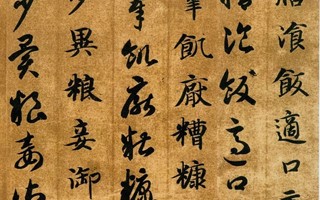 膳湌飯適口
膳湌飯適口
宰飢厭糟糠
宰飢厭糟糠
少異糧妾御
少異糧妾御